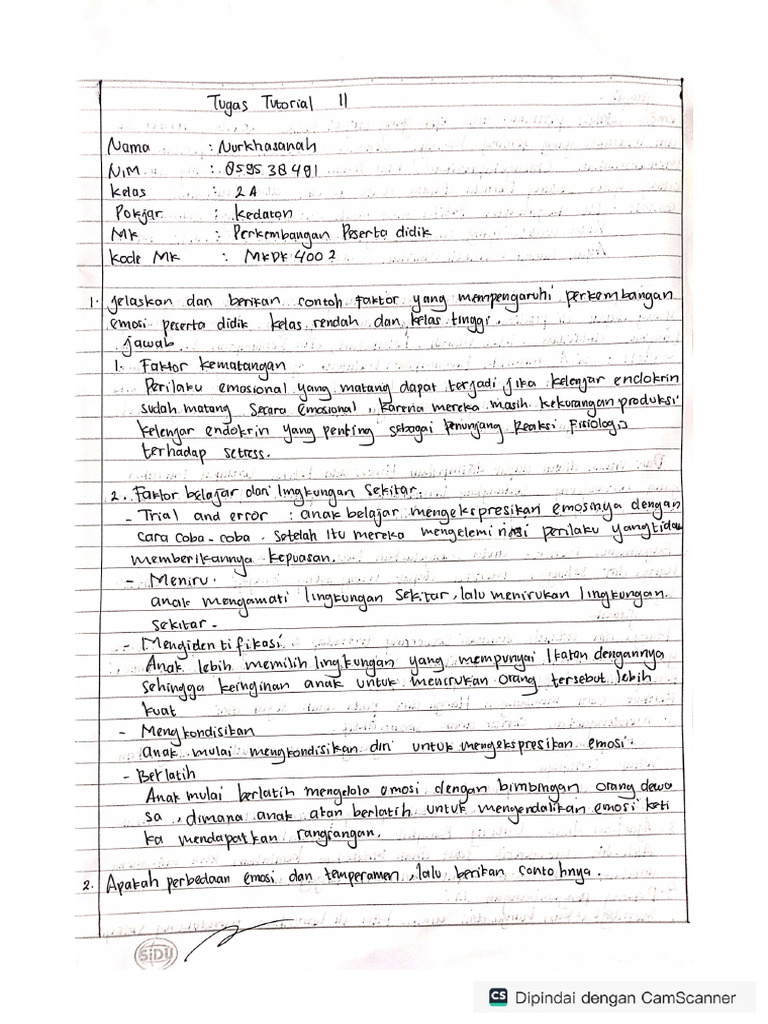 Tugas Tutorial II
Nama : Nurkhasanah
NIM : 859538491
Kelas : 2A
Pokjar : Kedaton
MK : Perkembangan Peserta didik
Kode MK : MKDK 4002
1. Jelaskan dan berikan contoh faktor yang mempengaruhi perkembangan
emosi peserta didik kelas rendah dan kelas tinggi.
Jawab
1. Faktor Kematangan
Perilaku emosional yang matang dapat terjadi jika kelenjar endokrin
sudah matang secara emosional, karena mereka masih kekurangan produksi
kelenjar endokrin yang penting sebagai penunjang Reaksi Fisiologis
terhadap setress.
2. Faktor belajar dari lingkungan sekitar.
- Trial and error : anak belajar mengekspresikan emosinya dengan
cara coba-coba. Setelah itu mereka mengeleminasi perilaku yang tidak
memberikannya kepuasan.
- Meniru.
anak mengamati lingkungan sekitar, lalu menirukan lingkungan
sekitar.
- Mengidentifikasi.
Anak lebih memilih lingkungan yang mempunyai Ikatan dengannya
sehingga keinginan anak untuk menirukan orang tersebut lebih
kuat
- Mengkondisikan
anak mulai mengkondisikan diri untuk mengekspresikan emosi.
- Berlatih
Anak mulai berlatih mengelola emosi dengan bimbingan orang dewa
sa, dimana anak akan berlatih untuk mengendalikan emosi keti
ka mendapatkan rangsangan.
2. Apakah perbedaan emosi dan temperamen, lalu berikan contohnya.
SiDU
CS Dipindai dengan CamScanner